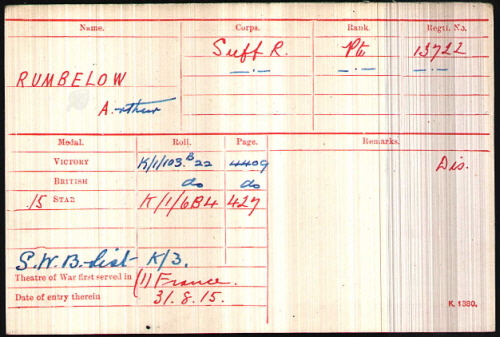 Name. Corps. Rank. Regtl. No.
RUMBELOW Suff R. Pte 13722
Arthur —·— —·— —·—
Medal. Roll. Page. Remarks.
VICTORY K/1/103.B22 4409 Dis.
BRITISH do do
15 STAR K/1/6B4 427
S.W.B. List K/3.
Theatre of War first served in (1) France.
Date of entry therein 31.8.15.
K. 1380.